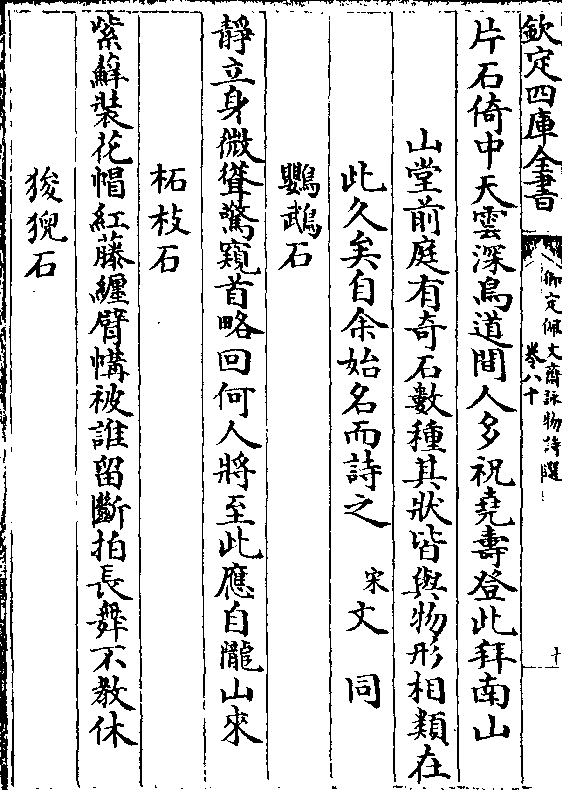 欽定四庫全書
御定佩文齋詠物詩選
卷八十
十
片石倚中天雲深鳥道間人多祝堯壽登此拜南山
山堂前庭有奇石數種其狀皆與物形相類在
此久矣自余始名而詩之 宋文同
鸚鵡石
靜立身微聳驚窺首略回何人將至此應自隴山來
柘枝石
紫蘚裝花帽紅藤纏臂韝被誰留斷拍長舞不教休
狻猊石